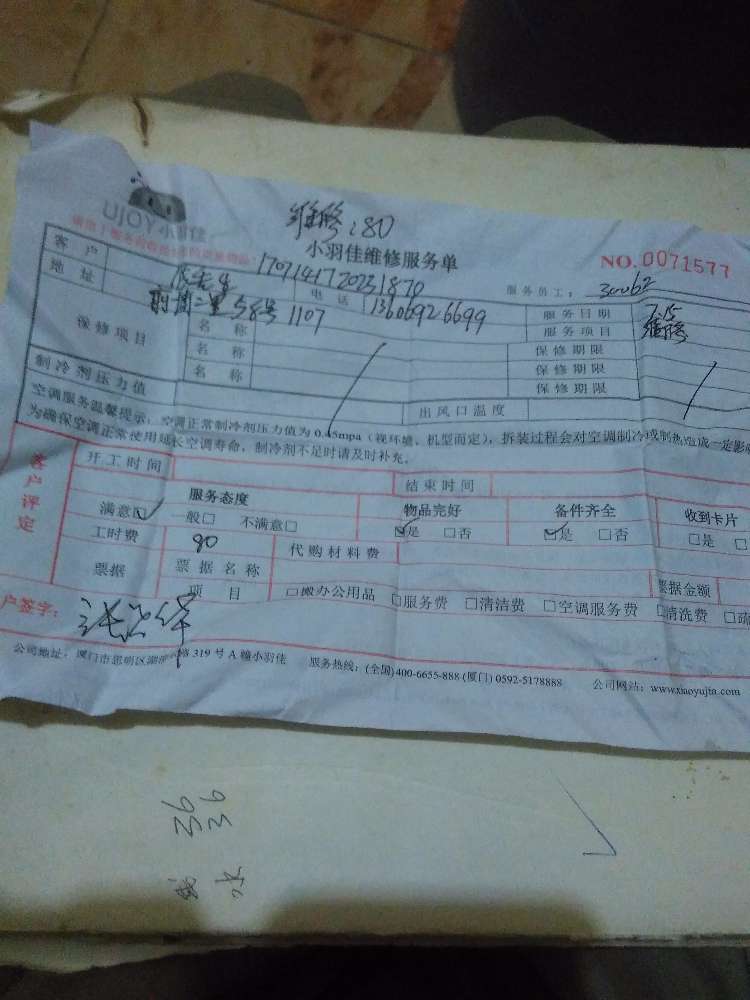 维修:80
UJOY小羽佳
小羽佳维修服务单
NO.0071577
1707141720231870
客户
服务员工:
地址
前埔二里58号1107
电话
13606926699
服务日期
7.15
保修项目
名称
服务项目
维修
名称
保修期限
名称
保修期限
保修期限
制冷剂压力值
出风口温度
空调服务温馨提示:空调正常制冷剂压力值为0.45mpa(视环境、机型而定),拆装过程会对空调制冷或制热造成一定影
为确保空调正常使用延长空调寿命,制冷剂不足时请及时补充。
客户评定
开工时间
结束时间
服务态度
物品完好
备件齐全
收到卡片
满意☑ 一般□ 不满意□
☑是 □否
☑是 □否
□是 □
工时费
代购材料费
票据
票据名称
票据金额
项目
□搬办公用品 □服务费 □清洁费 □空调服务费 □清洗费 □疏
户签字:
公司地址:厦门市思明区湖滨 路319号A幢小羽佳
服务热线:(全国)400-6655-888(厦门)0592-5178888
公司网站:www.xiaoyujia.com
36
36